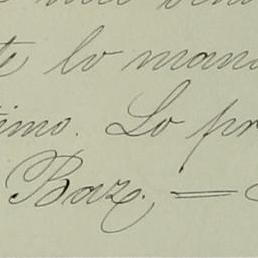 te lo mand
timo. Lo pr
Baz. =